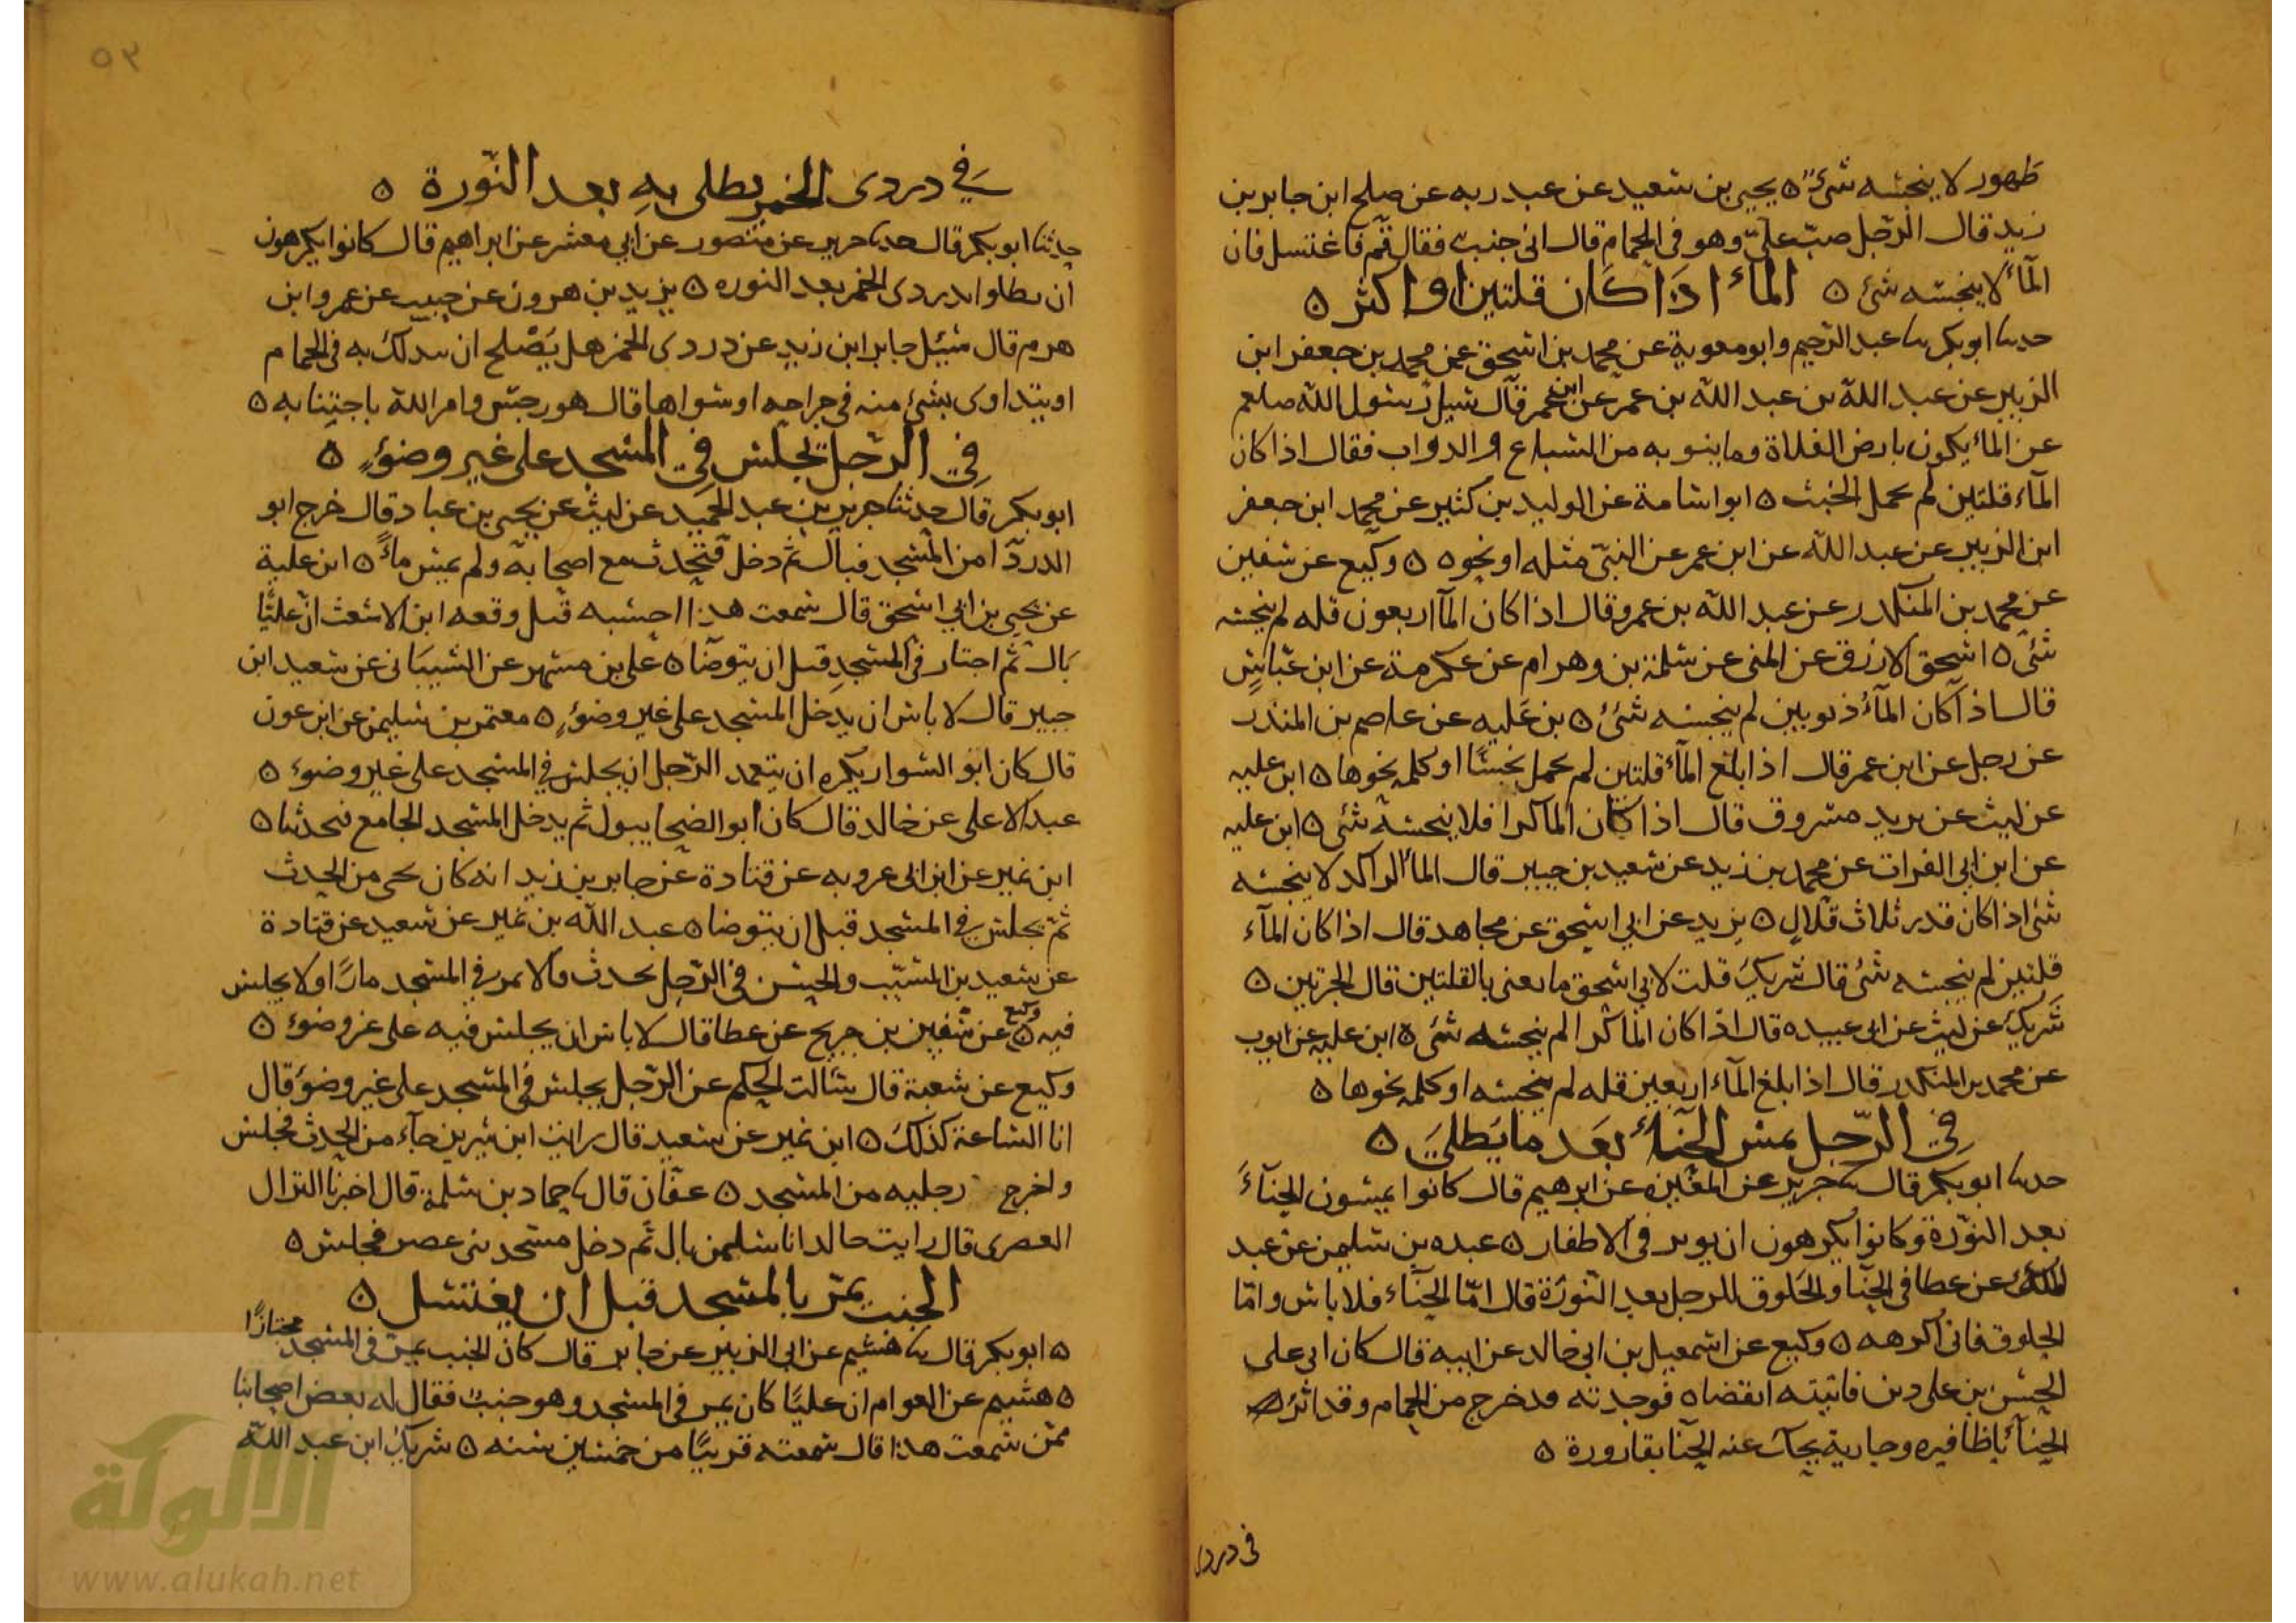 طهور لا ينجسه شئ ٥ يحيى بن سعيد عن عبد ربه عن صلح ابن جابر بن
زيد قال الرّجل صبّ علىّ وهو فى الحمام قال انى جنب فقال قم فاغتسل فان
المآء لا ينجسه شئ ٥ المآء اذا كان قلتين او اكثر ٥
حدثنا ابو بكر ثنا عبد الرحيم وابو معوية عن محمد بن اسحق عن محمد بن جعفر ابن
الزبير عن عبد الله بن عبد الله بن عمر عن ابن عمر قال سيل رسول الله صلعم
عن المآء يكون بارض الفلاة وما ينوبه من السباع والدواب فقال اذا كان
المآء قلتين لم يحمل الخبث ٥ ابو اسامة عن الوليد بن كثير عن محمد ابن جعفر
ابن الزبير عن عبد الله عن ابن عمر عن النبىّ مثله او نحوه ٥ وكيع عن سفين
عن محمد بن المنكدر عن عبد الله بن عمرو قال اذا كان المآ اربعون قله لم ينجسه
شئ ٥ اسحق الازرق عن المثنى عن سلمة بن وهرام عن عكرمة عن ابن عبّاسٍ
قال اذا كان المآء ذنوبين لم ينجسه شئ ٥ بن عليه عن عاصم بن المنذر
عن رجل عن ابن عمر قال اذا بلغ المآء قلتين لم يحمل نجسًا او كلمه نحوها ٥ ابن عليه
عن ليث عن يزيد مسروق قال اذا كان المآ كرا فلا ينجسه شئ ٥ ابن عليه
عن ابن ابى الفرات عن محمد بن زيد عن سعيد بن جبير قال المآ الراكد لا ينجسه
شئ اذا كان قدر ثلاث قلال ٥ يزيد عن ابى اسحق عن مجاهد قال اذا كان المآء
قلتين لم ينجسه شئ قال شريك قلت لابى اسحق ما يعنى بالقلتين قال الجرتين ٥
شريك عن ليث عن ابى عبيده قال اذا كان المآ كرا لم ينجسه شئ ٥ ابن عليه عن ايوب
عن محمد بن المنكدر قال اذا بلغ المآء اربعين قله لم ينجسه او كلمه نحوها ٥
فى الرّجل يمس الحنآء بعد ما يطلى ٥
حدثنا ابو بكر قال ثنا جرير عن المغيره عن ابرهيم قال كانوا يمسون الحنآء
بعد النوّرة وكانوا يكرهون ان يوثر فى الاظفار ٥ عبده بن سليمن عن عبد
الملك عن عطا فى الحنآ والخلوق للرجل بعد النّورة قال امّا الحنّآء فلا باس وامّا
الخلوق فانى اكرهه ٥ وكيع عن اسمعيل بن ابى خالد عن ابيه قال كان لى على
الحسن بن على دين فاتيته اتقضاه فوجدته قد خرج من الحمام وقد اثر
الحنآء باظافيره وجارية يحك عنه الحنّآ بقارورة ٥
فى دردى
٥٣
فى دردى الخمر يطلى به بعد النّورة ٥
حدثنا ابو بكر قال حدثنا جرير عن منصور عن ابى معشر عن ابراهيم قال كانوا يكرهون
ان يطلوا بدردى الخمر بعد النوره ٥ يزيد بن هرون عن حبيب عن عمرو ابن
هرم قال سئيل جابر ابن زيد عن دردى الخمر هل يصلح ان يتدلك به فى الحمام
او يتداوى بشئ منه فى جراحه او سواها قال هو رجس وامر الله باجتنابه ٥
فى الرّجل يجلس فى المسجد على غير وضوءٍ ٥
ابو بكر قال حدثنا جرير بن عبد الحميد عن ليث عن يحيى بن عباد قال خرج ابو
الدردآ من المسجد فبال ثم دخل فتحدث مع اصحابه ولم يمس مآءً ٥ ابن علية
عن يحيى بن ابى اسحق قال سمعت هذا احسبه قبل وقعه ابن الاشعث انّ عليًّا
بال ثم اجتاز فى المسجد قبل ان يتوضّا ٥ على بن مسهر عن الشيبانى عن سعيد ابن
جبير قال لا باس ان يدخل المسجد على غير وضوءٍ ٥ معتمر بن سليمن عن ابن عون
قال كان ابو السوار يكره ان يتعمد الرّجل ان يجلس فى المسجد على غير وضوء ٥
عبد الاعلى عن خالد قال كان ابو الضحا يبول ثم يدخل المسجد الجامع فيحدثنا ٥
ابن نمير عن ابن ابى عروبه عن قتادة عن جابر بن زيد انه كان يجى من الحدث
ثم يجلس فى المسجد قبل ان يتوضا ٥ عبد الله بن نمير عن سعيد عن قتادة
عن سعيد بن المسيّب والحسن فى الرّجل يحدث قالا يمر فى المسجد مارًا ولا يجلس
فيه ٥ وكيع عن سفين بن جريج عن عطا قال لا باس ان يجلس فيه على غير وضوء ٥
وكيع عن شعبة قال سالت الحكم عن الرّجل يجلس فى المسجد على غير وضوء قال
انا الساعة كذلك ٥ ابن نمير عن سعيد قال رايت ابن سيرين جآء من الحدث فجلس
واخرج رجليه من المسجد ٥ عفّان قال ثنا حماد بن سلمة قال اخبرنا النزال
العصرى قال رايت خالدا نا سليمن بال ثم دخل مسجد بنى عصر فجلس ٥
الجنب يمرّ بالمسجد قبل ان يغتسل ٥
٥ ابو بكر قال ثنا هشيم عن ابى الزبير عن جابر قال كان الجنب يمرّ فى المسجد مجتازًا
٥ هشيم عن العوام ان عليًّا كان يمر فى المسجد وهو جنب فقال له بعض اصحابنا
ممّن سمعت هذا قال سمعته قريبًا من خمسين سنه ٥ شريك ابن عبد الله
الألوكة
www.alukah.net